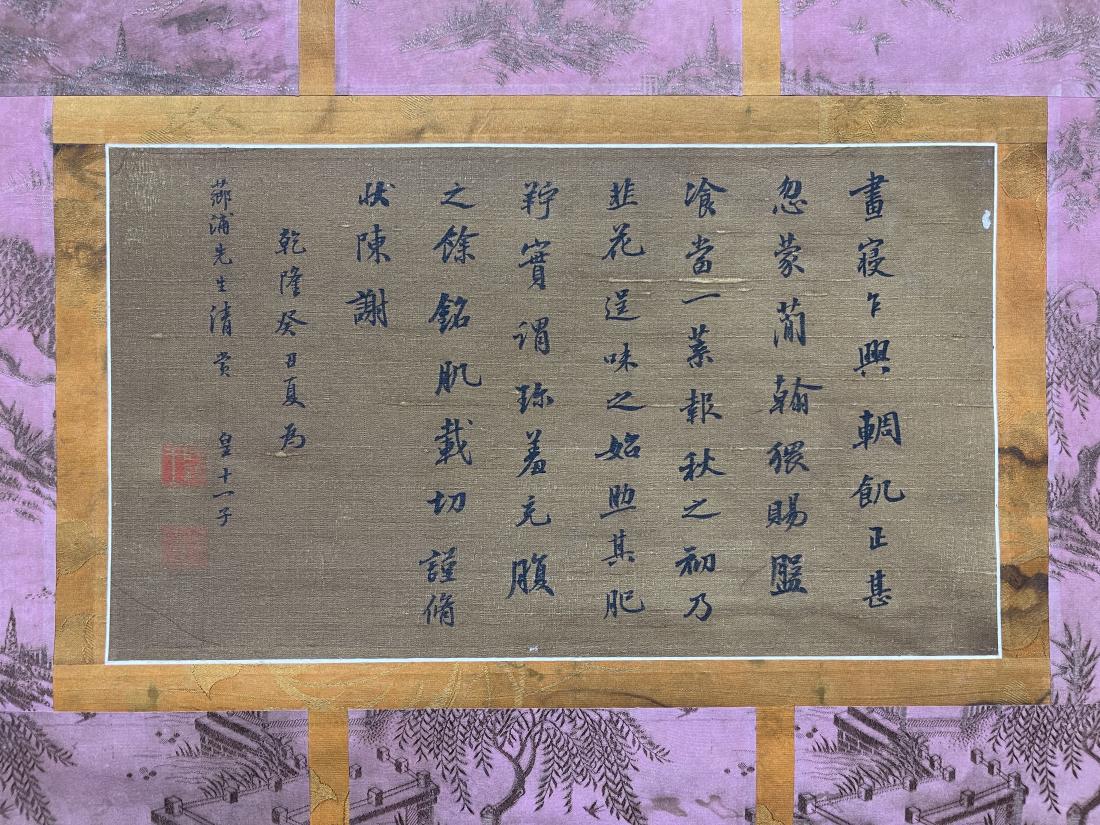 晝寢乍興輖飢正甚
忽蒙簡翰猥賜盤
飡當一葉報秋之初乃
韭花逞味之始助其肥
羜實謂珍羞充腹
之餘銘肌載切謹脩
狀陳謝
乾隆癸丑夏為
薌浦先生清赏
皇十一子